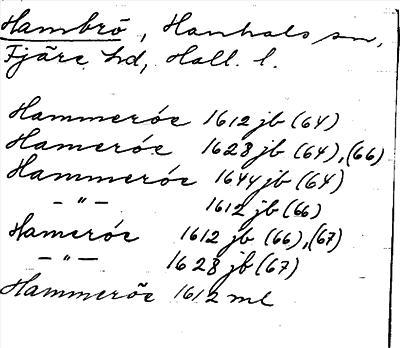 Hambrö, Hanhals sn,
Fjäre hd, Hall. l.
Hammeröe 1612 jb (64)
Hameróe 1628 jb (64), (66)
Hammeróe 1644 jb (64)
— " — 1612 jb (66)
Hameróe 1612 jb (66), (67)
— " — 1628 jb (67)
Hammerõe 1612 ml